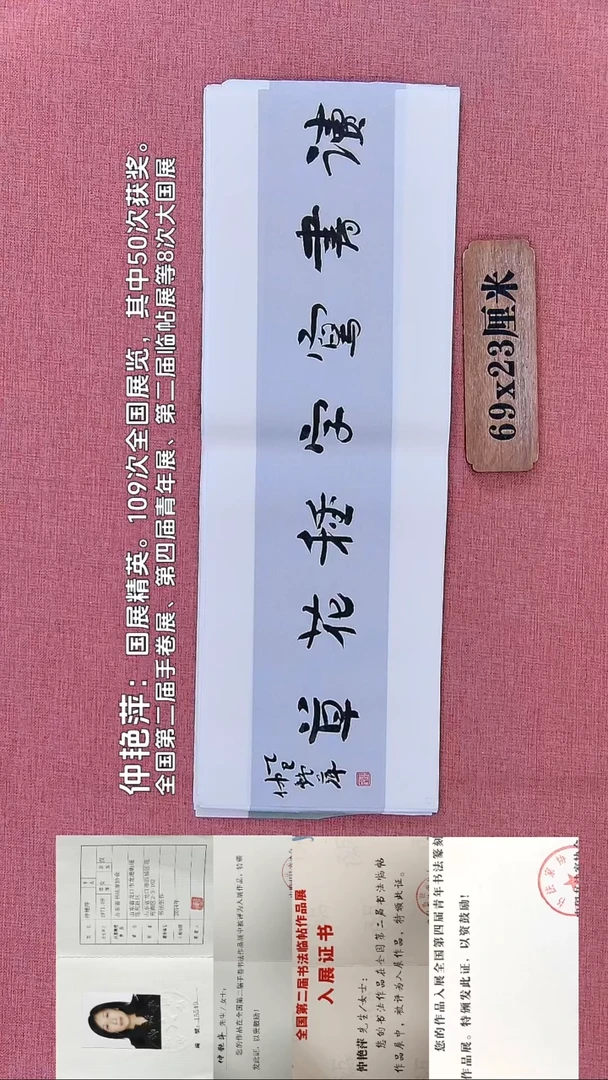 仲艳萍：国展精英。109次全国展览，其中50次获奖。
全国第二届手卷展、第四届青年展、第二届临帖展等8次大国展
讀書寫字種花草
乙巳
仲艳萍
69x23厘米
仲艳萍 先生/女士：
发此证，以资鼓励！
全国第二届书法临帖作品展
入展证书
仲艳萍 先生/女士：
您的书法作品在全国第二届书法临帖
作品展中，被评为入展作品，特颁此证。
您的作品入展全国第四届青年书法篆刻
作品展。特颁发此证，以资鼓励！